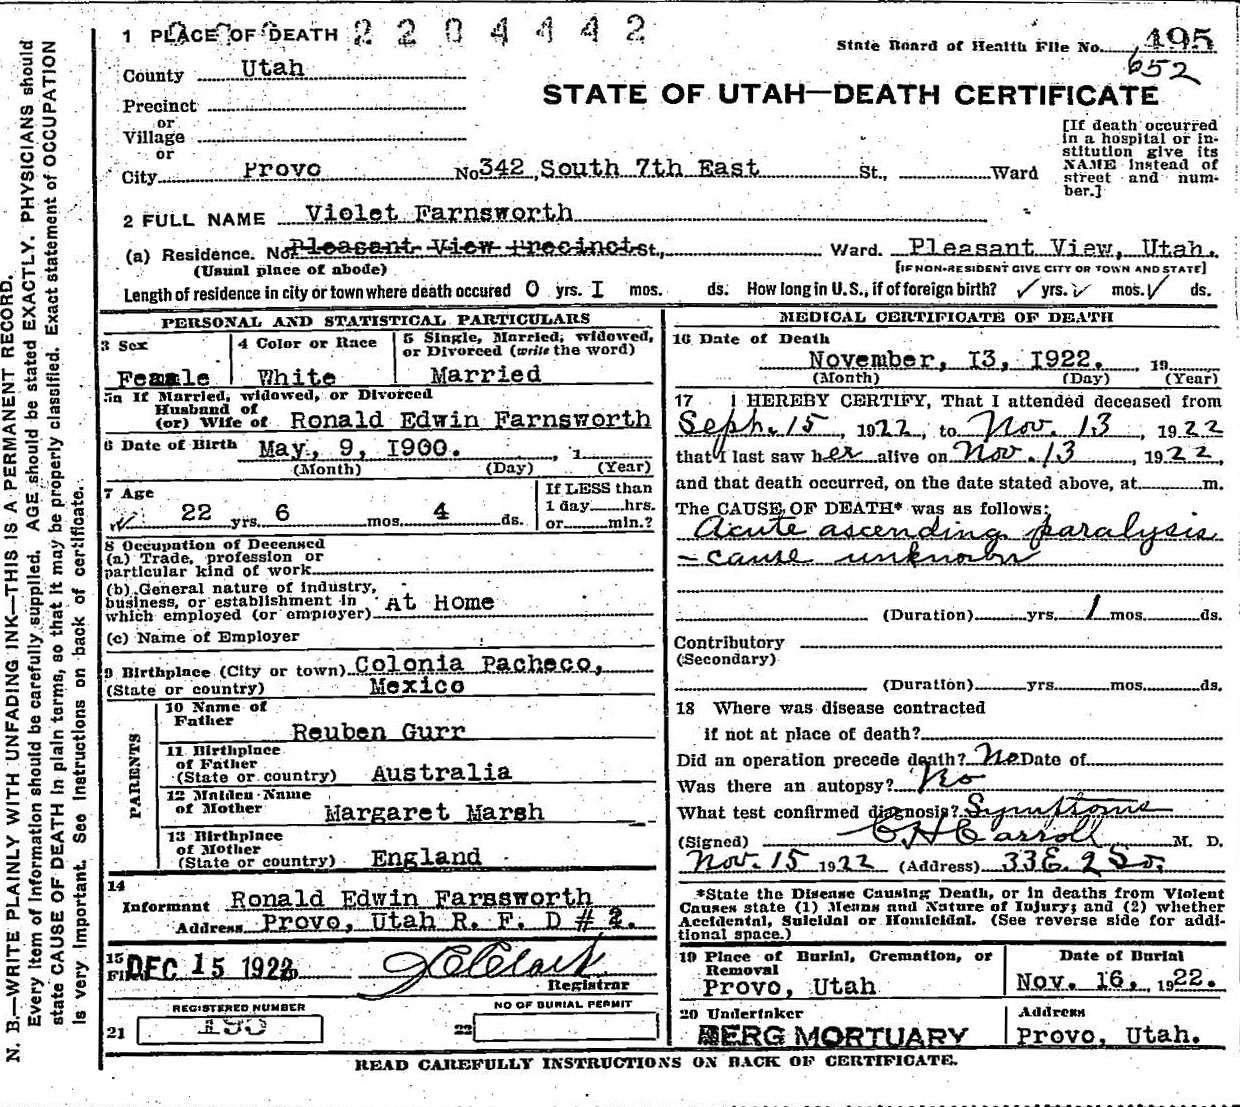 1 PLACE OF DEATH 2204442
State Board of Health File No. 495
652
County Utah
STATE OF UTAH—DEATH CERTIFICATE
Precinct
or
Village
or
City Provo No 342 South 7th East St., Ward
[If death occurred
in a hospital or in-
stitution give its
NAME instead of
street and num-
ber.]
2 FULL NAME Violet Farnsworth
(a) Residence. No. Pleasant View Precinct St., Ward. Pleasant View, Utah.
(Usual place of abode) [IF NON-RESIDENT GIVE CITY OR TOWN AND STATE]
Length of residence in city or town where death occured 0 yrs. I mos. ds. How long in U.S., if of foreign birth? ✓ yrs. ✓ mos. ✓ ds.
PERSONAL AND STATISTICAL PARTICULARS
3 Sex
Feamle
4 Color or Race
White
5 Single, Married, widowed,
or Divorced (write the word)
Married
5a If Married, widowed, or Divorced
Husband of
(or) Wife of Ronald Edwin Farnsworth
6 Date of Birth May, 9, I900. , 1
(Month) (Day) (Year)
7 Age
22 yrs. 6 mos. 4 ds.
If LESS than
1 day hrs.
or min.?
8 Occupation of Deceased
(a) Trade, profession or
particular kind of work
(b) General nature of industry,
business, or establishment in
which employed (or employer) At Home
(c) Name of Employer
9 Birthplace (City or town) Colonia Pacheco,
(State or country) Mexico
PARENTS
10 Name of
Father Reuben Gurr
11 Birthplace
of Father
(State or country) Australia
12 Maiden Name
of Mother Margaret Marsh
13 Birthplace
of Mother
(State or country) England
14
Informant Ronald Edwin Farnsworth
Address Provo, Utah R. F. D # 2.
15
Filed DEC 15 1922 J C Clark
Registrar
REGISTERED NUMBER
21 195
NO OF BURIAL PERMIT
22
MEDICAL CERTIFICATE OF DEATH
16 Date of Death
November, I3, I922. 19
(Month) (Day) (Year)
17 I HEREBY CERTIFY, That I attended deceased from
Seph. 15, 1922, to Nov. 13, 1922
that I last saw her alive on Nov. 13, 1922,
and that death occurred, on the date stated above, at m.
The CAUSE OF DEATH* was as follows:
Acute ascending paralysis
- cause unknown
(Duration) yrs 1 mos. ds.
Contributory
(Secondary)
(Duration) yrs mos. ds.
18 Where was disease contracted
if not at place of death?
Did an operation precede death? No Date of
Was there an autopsy? No
What test confirmed diagnosis? Symptoms
(Signed) C H Carroll M. D.
Nov. 15 1922 (Address) 33 E. 2 So.
*State the Disease Causing Death, or in deaths from Violent
Causes state (1) Means and Nature of Injury; and (2) whether
Accidental, Suicidal or Homicidal. (See reverse side for addi-
tional space.)
19 Place of Burial, Cremation, or
Removal
Provo, Utah
Date of Burial
Nov. 16, 1922.
20 Undertaker
BERG MORTUARY
Address
Provo, Utah.
READ CAREFULLY INSTRUCTIONS ON BACK OF CERTIFICATE.
N. B.—WRITE PLAINLY WITH UNFADING INK—THIS IS A PERMANENT RECORD.
Every item of information should be carefully supplied. AGE should be stated EXACTLY. PHYSICIANS should
state CAUSE OF DEATH in plain terms, so that it may be properly classified. Exact statement of OCCUPATION
is very important. See instructions on back of certificate.